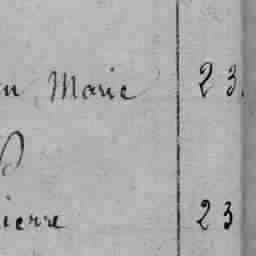 Marie 23.
ierre 23